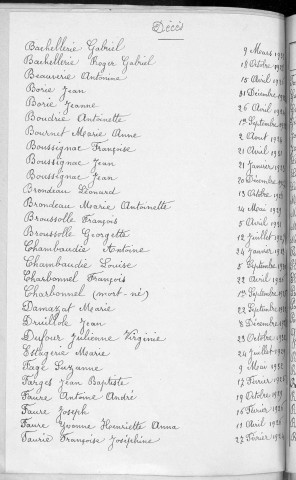 Décès
Bachellerie Gabriel 9 Mars
Bachellerie Roger Gabriel 18 Octobre
Beauverie Antoinine 15 Avril
Borie Jean 21 Décembre
Borie Jeanne 26 Avril
Boudrie Antoinette 1er Septembre
Bournet Marie Anne 2 Août
Boussignac Françoise 21 Avril
Boussignac Jean 21 Janvier
Boussignac Jean 20 Décembre
Brondeau Léonard 13 Octobre
Brondeau Marie Antoinette 14 Mai
Broussolle François 5 Avril
Broussolle Georgette 12 Juillet
Chambaudie Antoine 24 Janvier
Chambaudie Louise 5 Septembre
Charbonnel François 22 Avril
Charbonnel (mort-né) 1er Septembre
Damazat Marie 22 Septembre
Druillole Jean 7 Décembre
Dufour Julienne Virginie 23 Octobre
Eslagerie Marie 24 Juillet
Fage Suzanne 9 Mai
Farges Jean Baptiste 17 Février
Faure Antoine André 19 Octobre
Faure Joseph 16 Février
Faure Yvonne Henriette Anna 11 Avril
Faurie Françoise Joséphine 27 Février